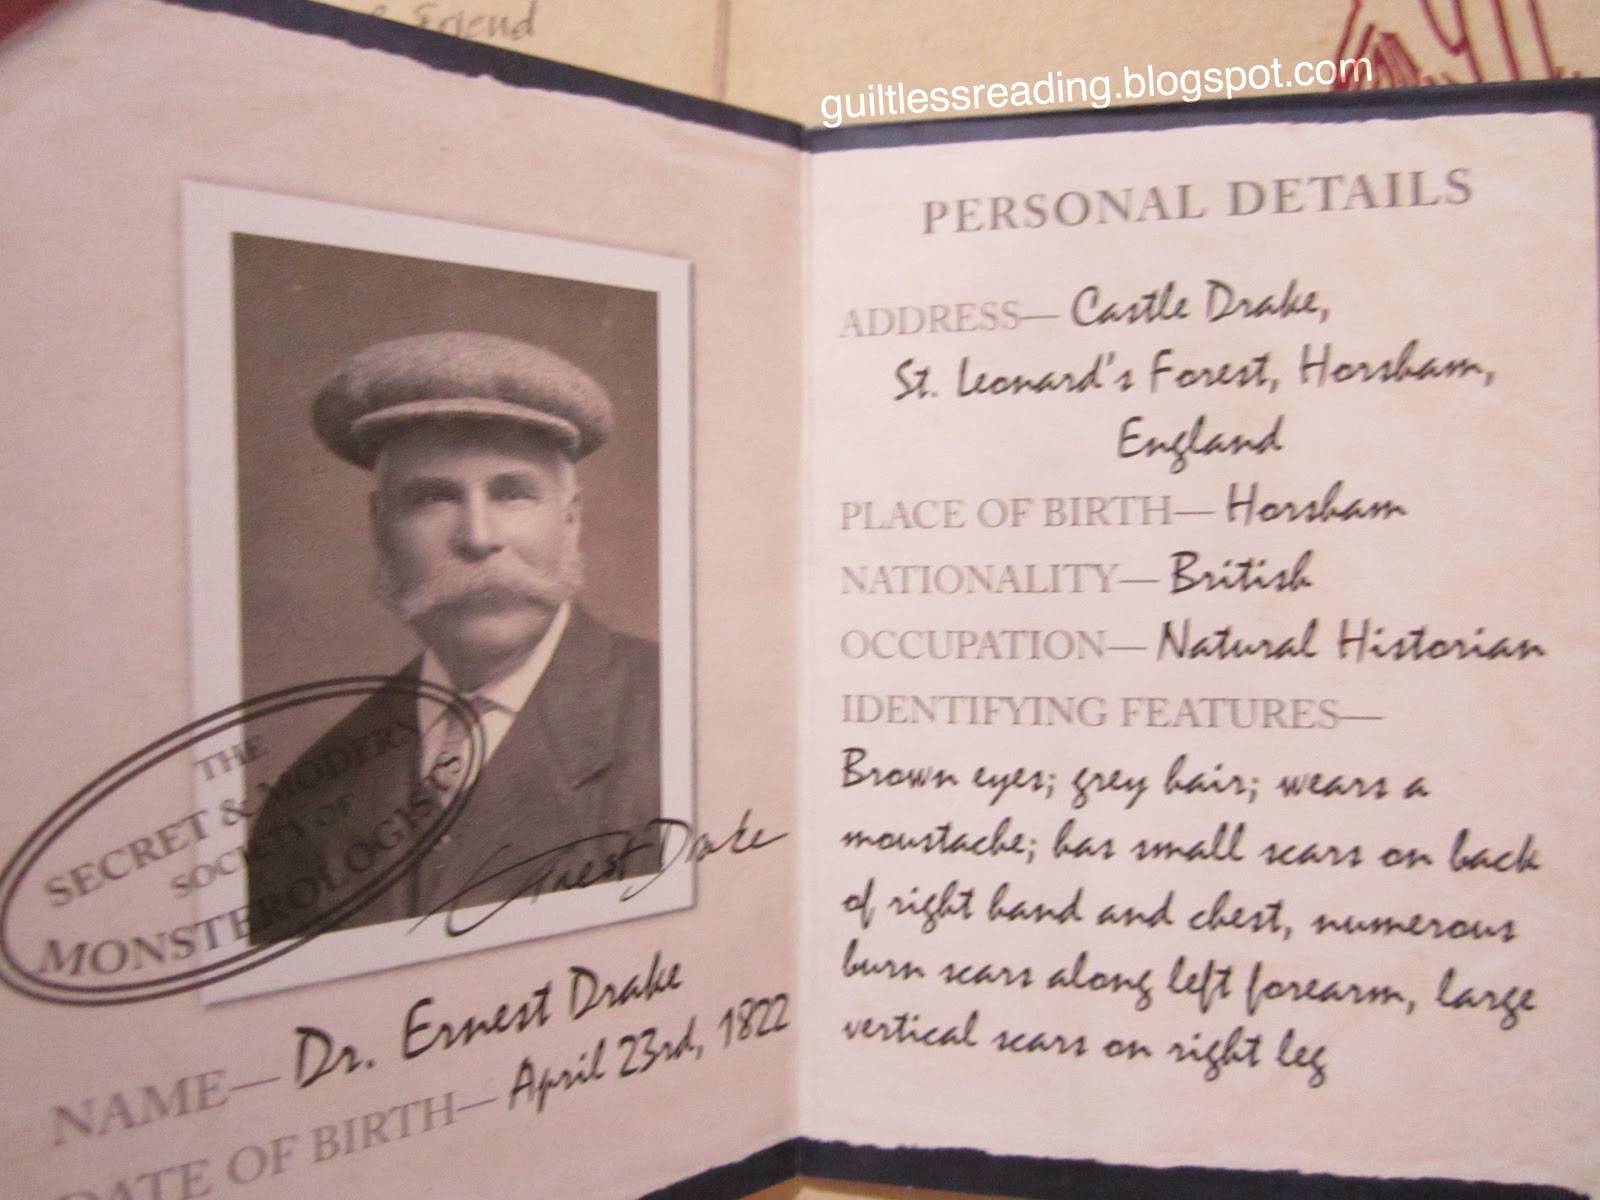 Friend
guiltlessreading.blogspot.com
THE
SECRET & MODERN
SOCIETY OF
MONSTEROLOGISTS
Ernest Drake
NAME— Dr. Ernest Drake
DATE OF BIRTH— April 23rd, 1822
PERSONAL DETAILS
ADDRESS— Castle Drake,
St. Leonard's Forest, Horsham,
England
PLACE OF BIRTH— Horsham
NATIONALITY— British
OCCUPATION— Natural Historian
IDENTIFYING FEATURES—
Brown eyes; grey hair; wears a
moustache; has small scars on back
of right hand and chest, numerous
burn scars along left forearm, large
vertical scars on right leg